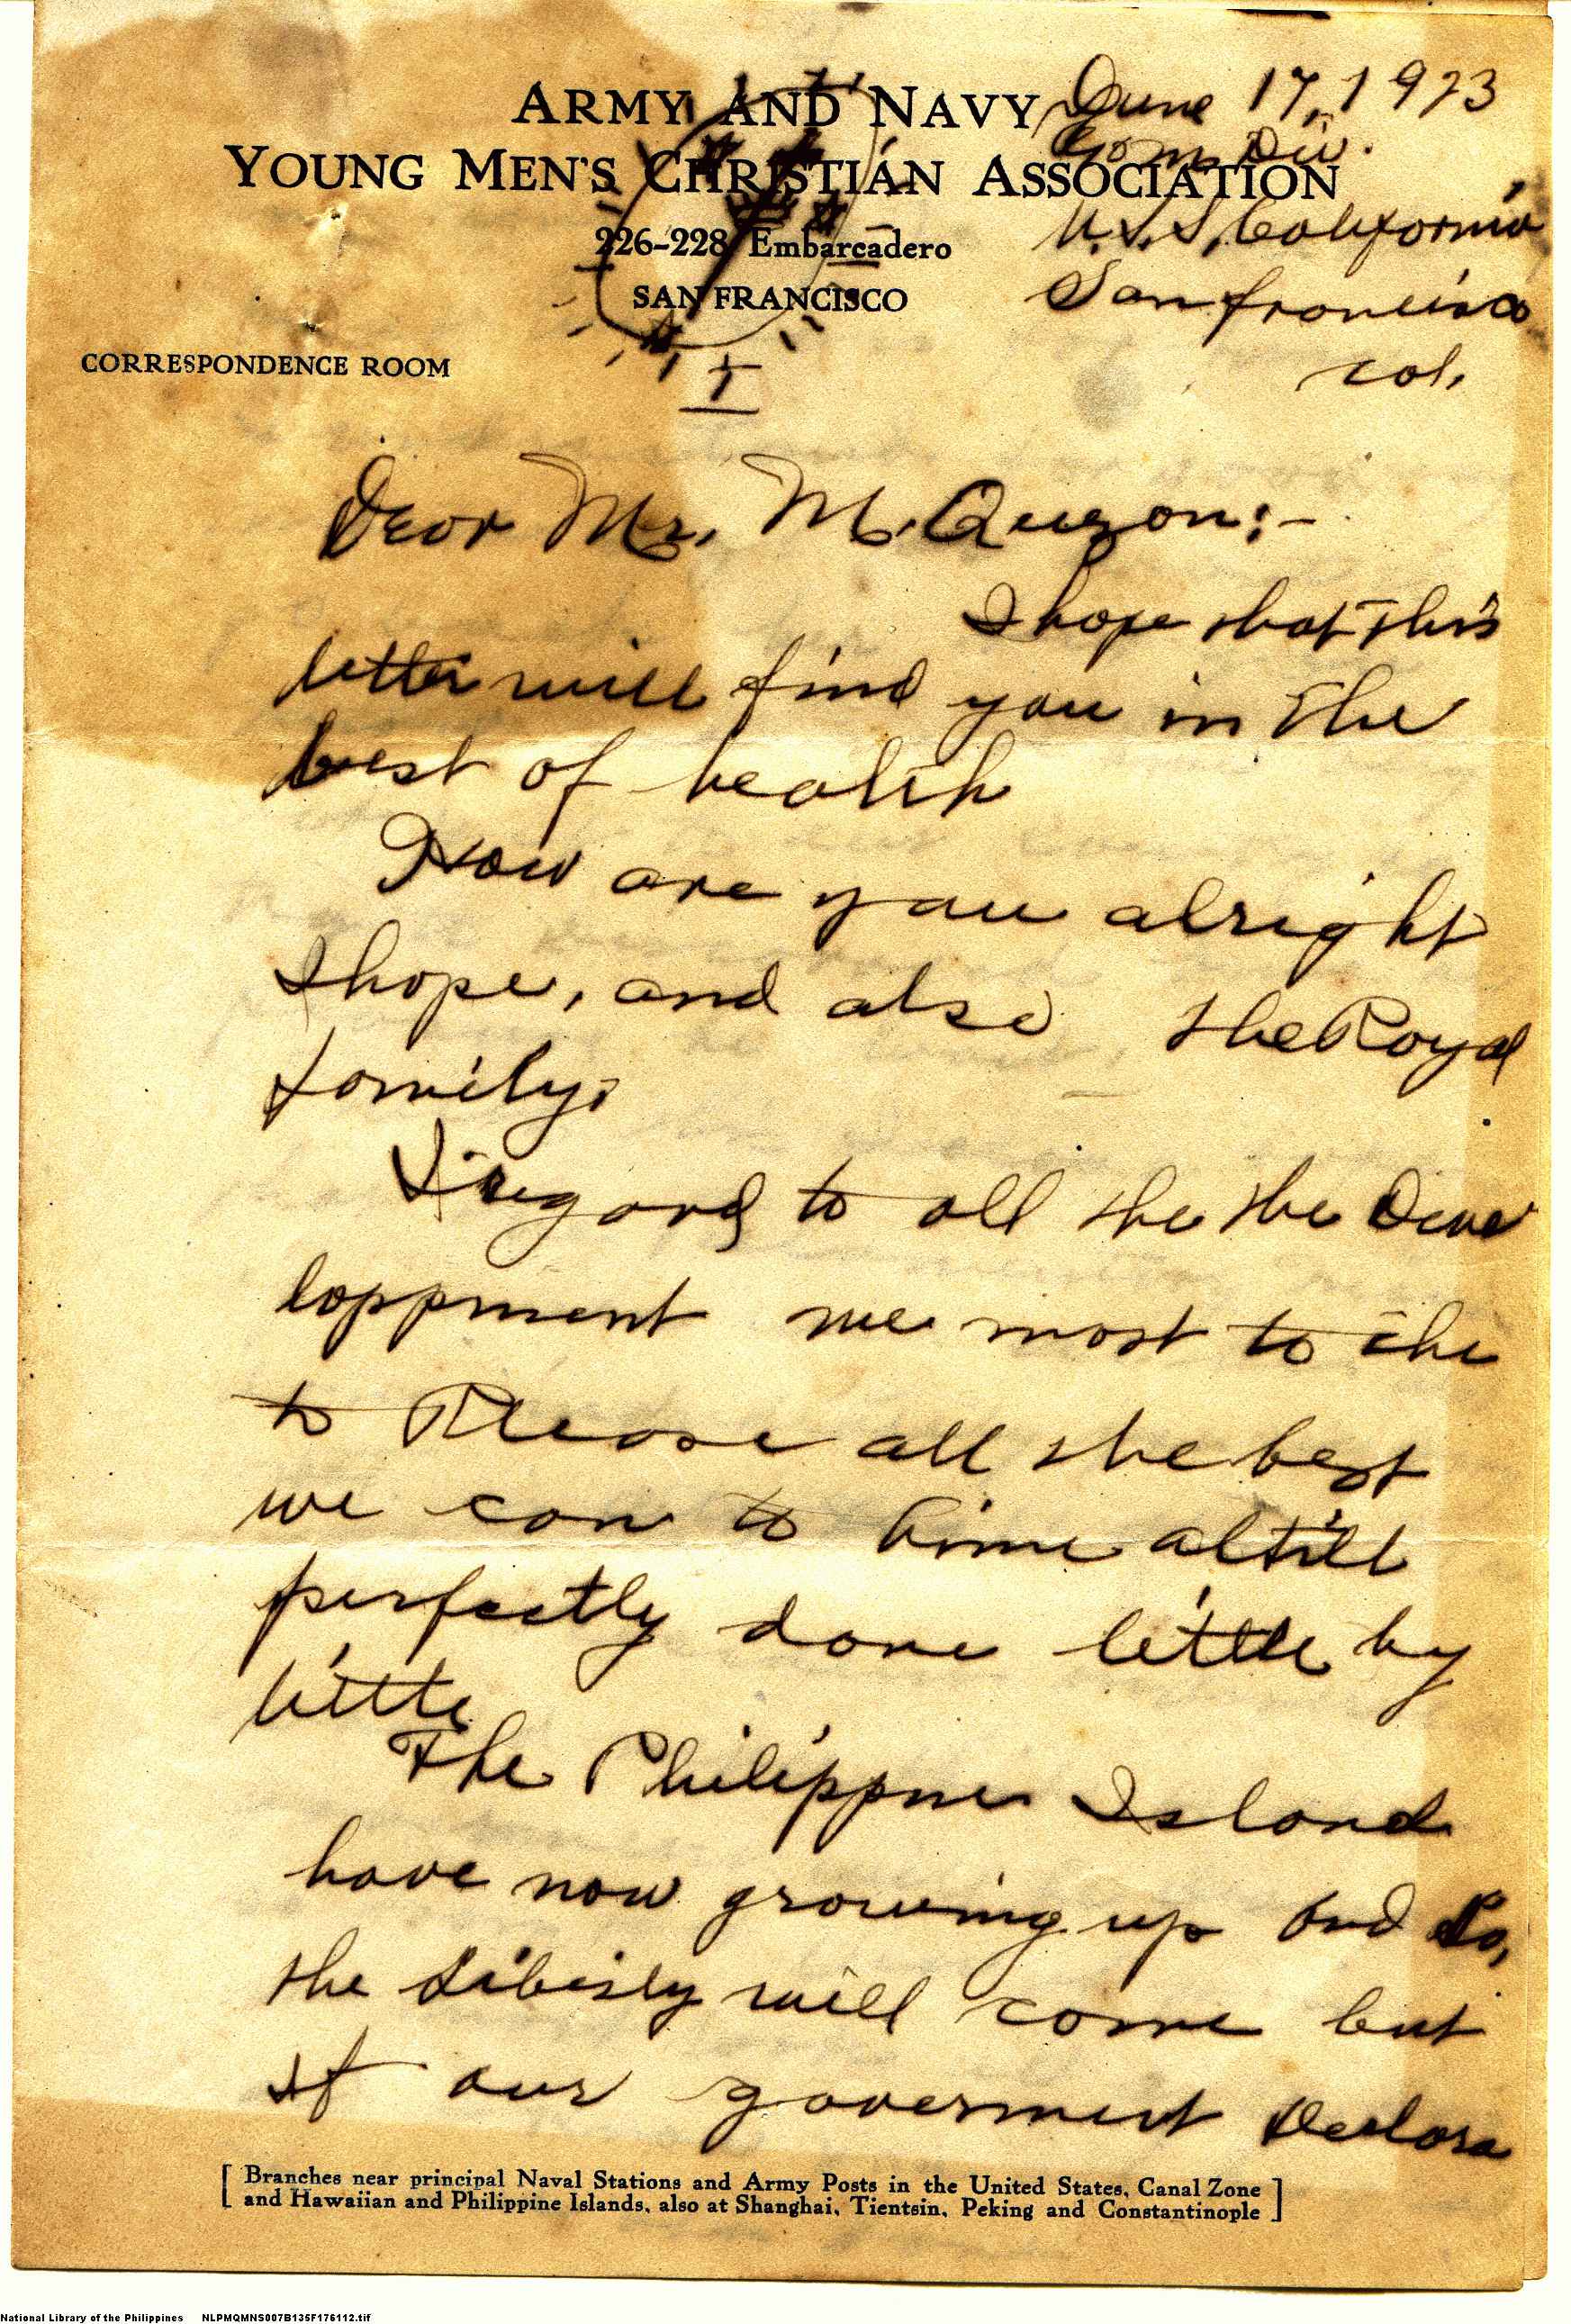 ARMY AND NAVY
June 17, 1923
YOUNG MEN'S CHRISTIAN ASSOCIATION
Com. Div.
226-228 Embarcadero
U.S.S. California
SAN FRANCISCO
San francisco
cal.
CORRESPONDENCE ROOM
I
Dear Mr. M. Quezon:-
I hope that this
letter will find you in the
best of health
How are you alright
I hope, and also the Royal
family.
I regard to all the the Deve
loppment we most to the
to Please all the best
we can to hime altill
perfectly done little by
little
The Philippine Island
have now growing up and So,
the Liberly will come but
if our goverment Declare
[ Branches near principal Naval Stations and Army Posts in the United States, Canal Zone
and Hawaiian and Philippine Islands, also at Shanghai, Tientsin, Peking and Constantinople ]
National Library of the Philippines NLPMQMNS007B135F176112.tif